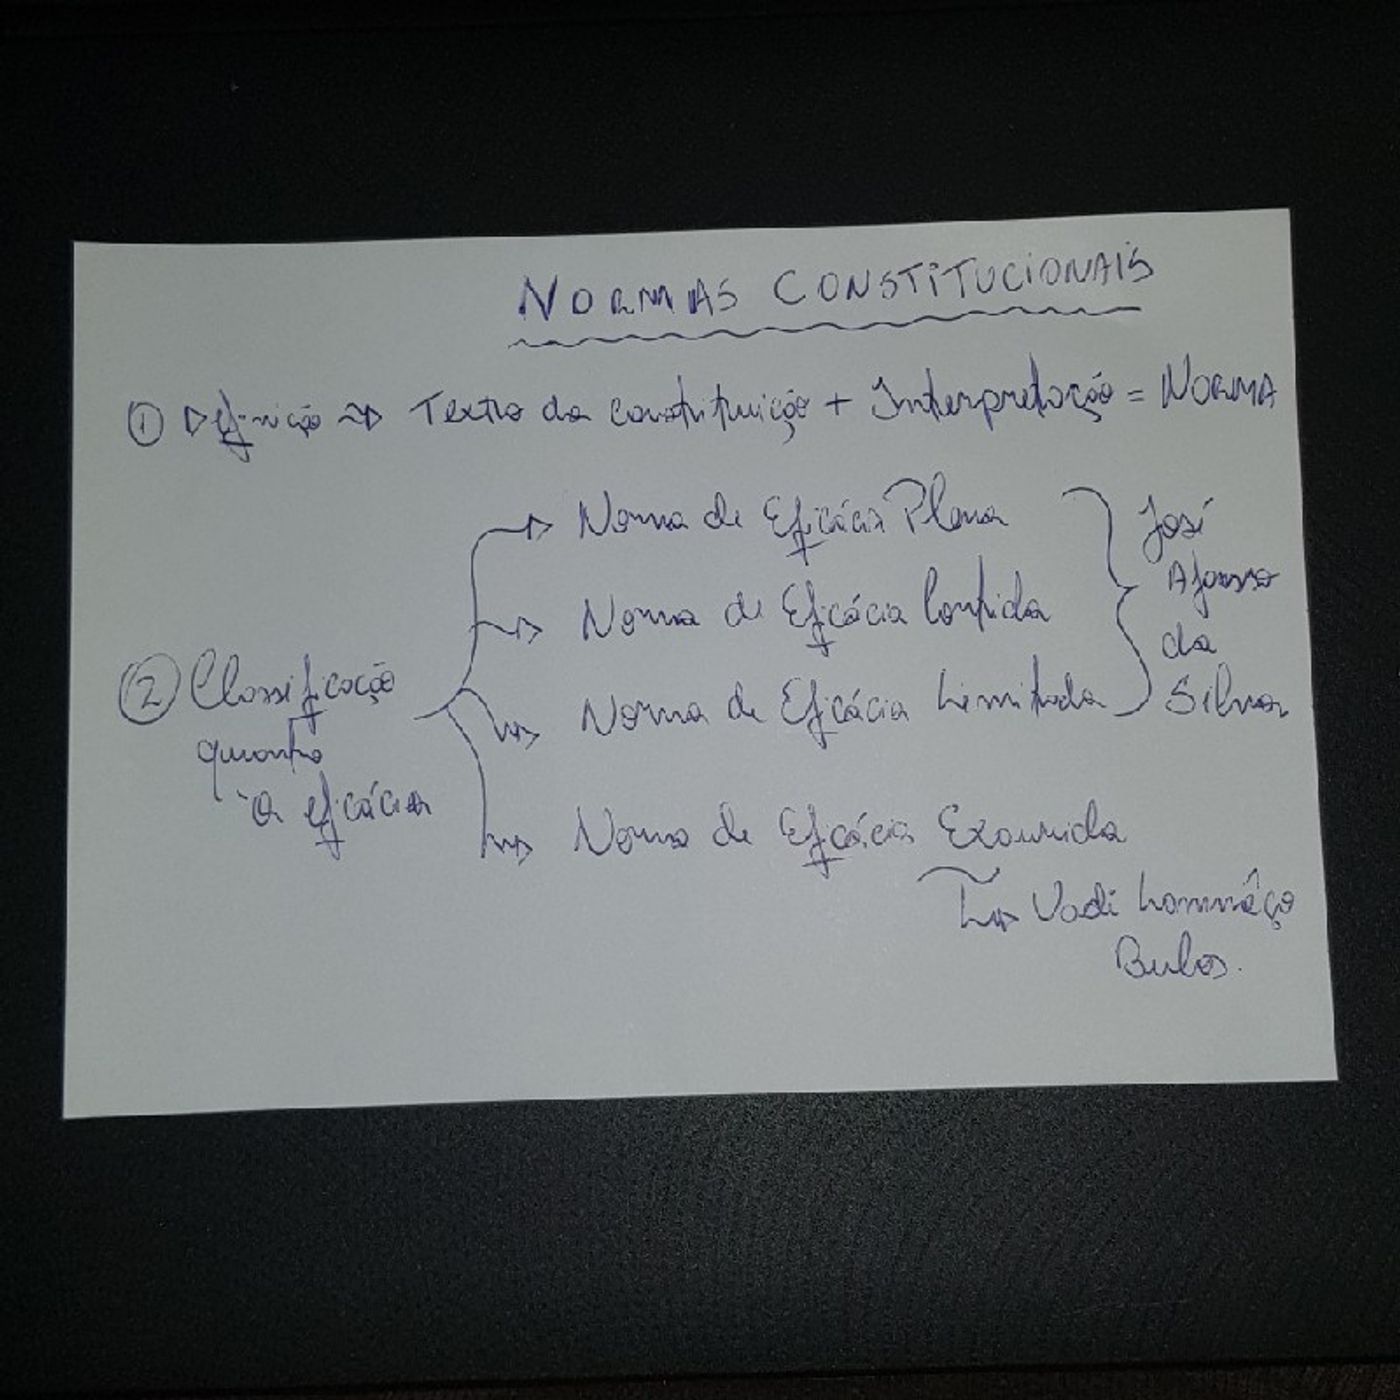 NORMAS CONSTITUCIONAIS
① Definição ⇒ Texto da constituição + Interpretação = NORMA
→ Norma de Eficácia Plena
→ Norma de Eficácia Contida
→ Norma de Eficácia Limitada
José
Afonso
da
Silva
② Classificação
quanto
à eficácia
→ Norma de Eficácia Exaurida
↳ Uadi Lammêgo
Bulos.